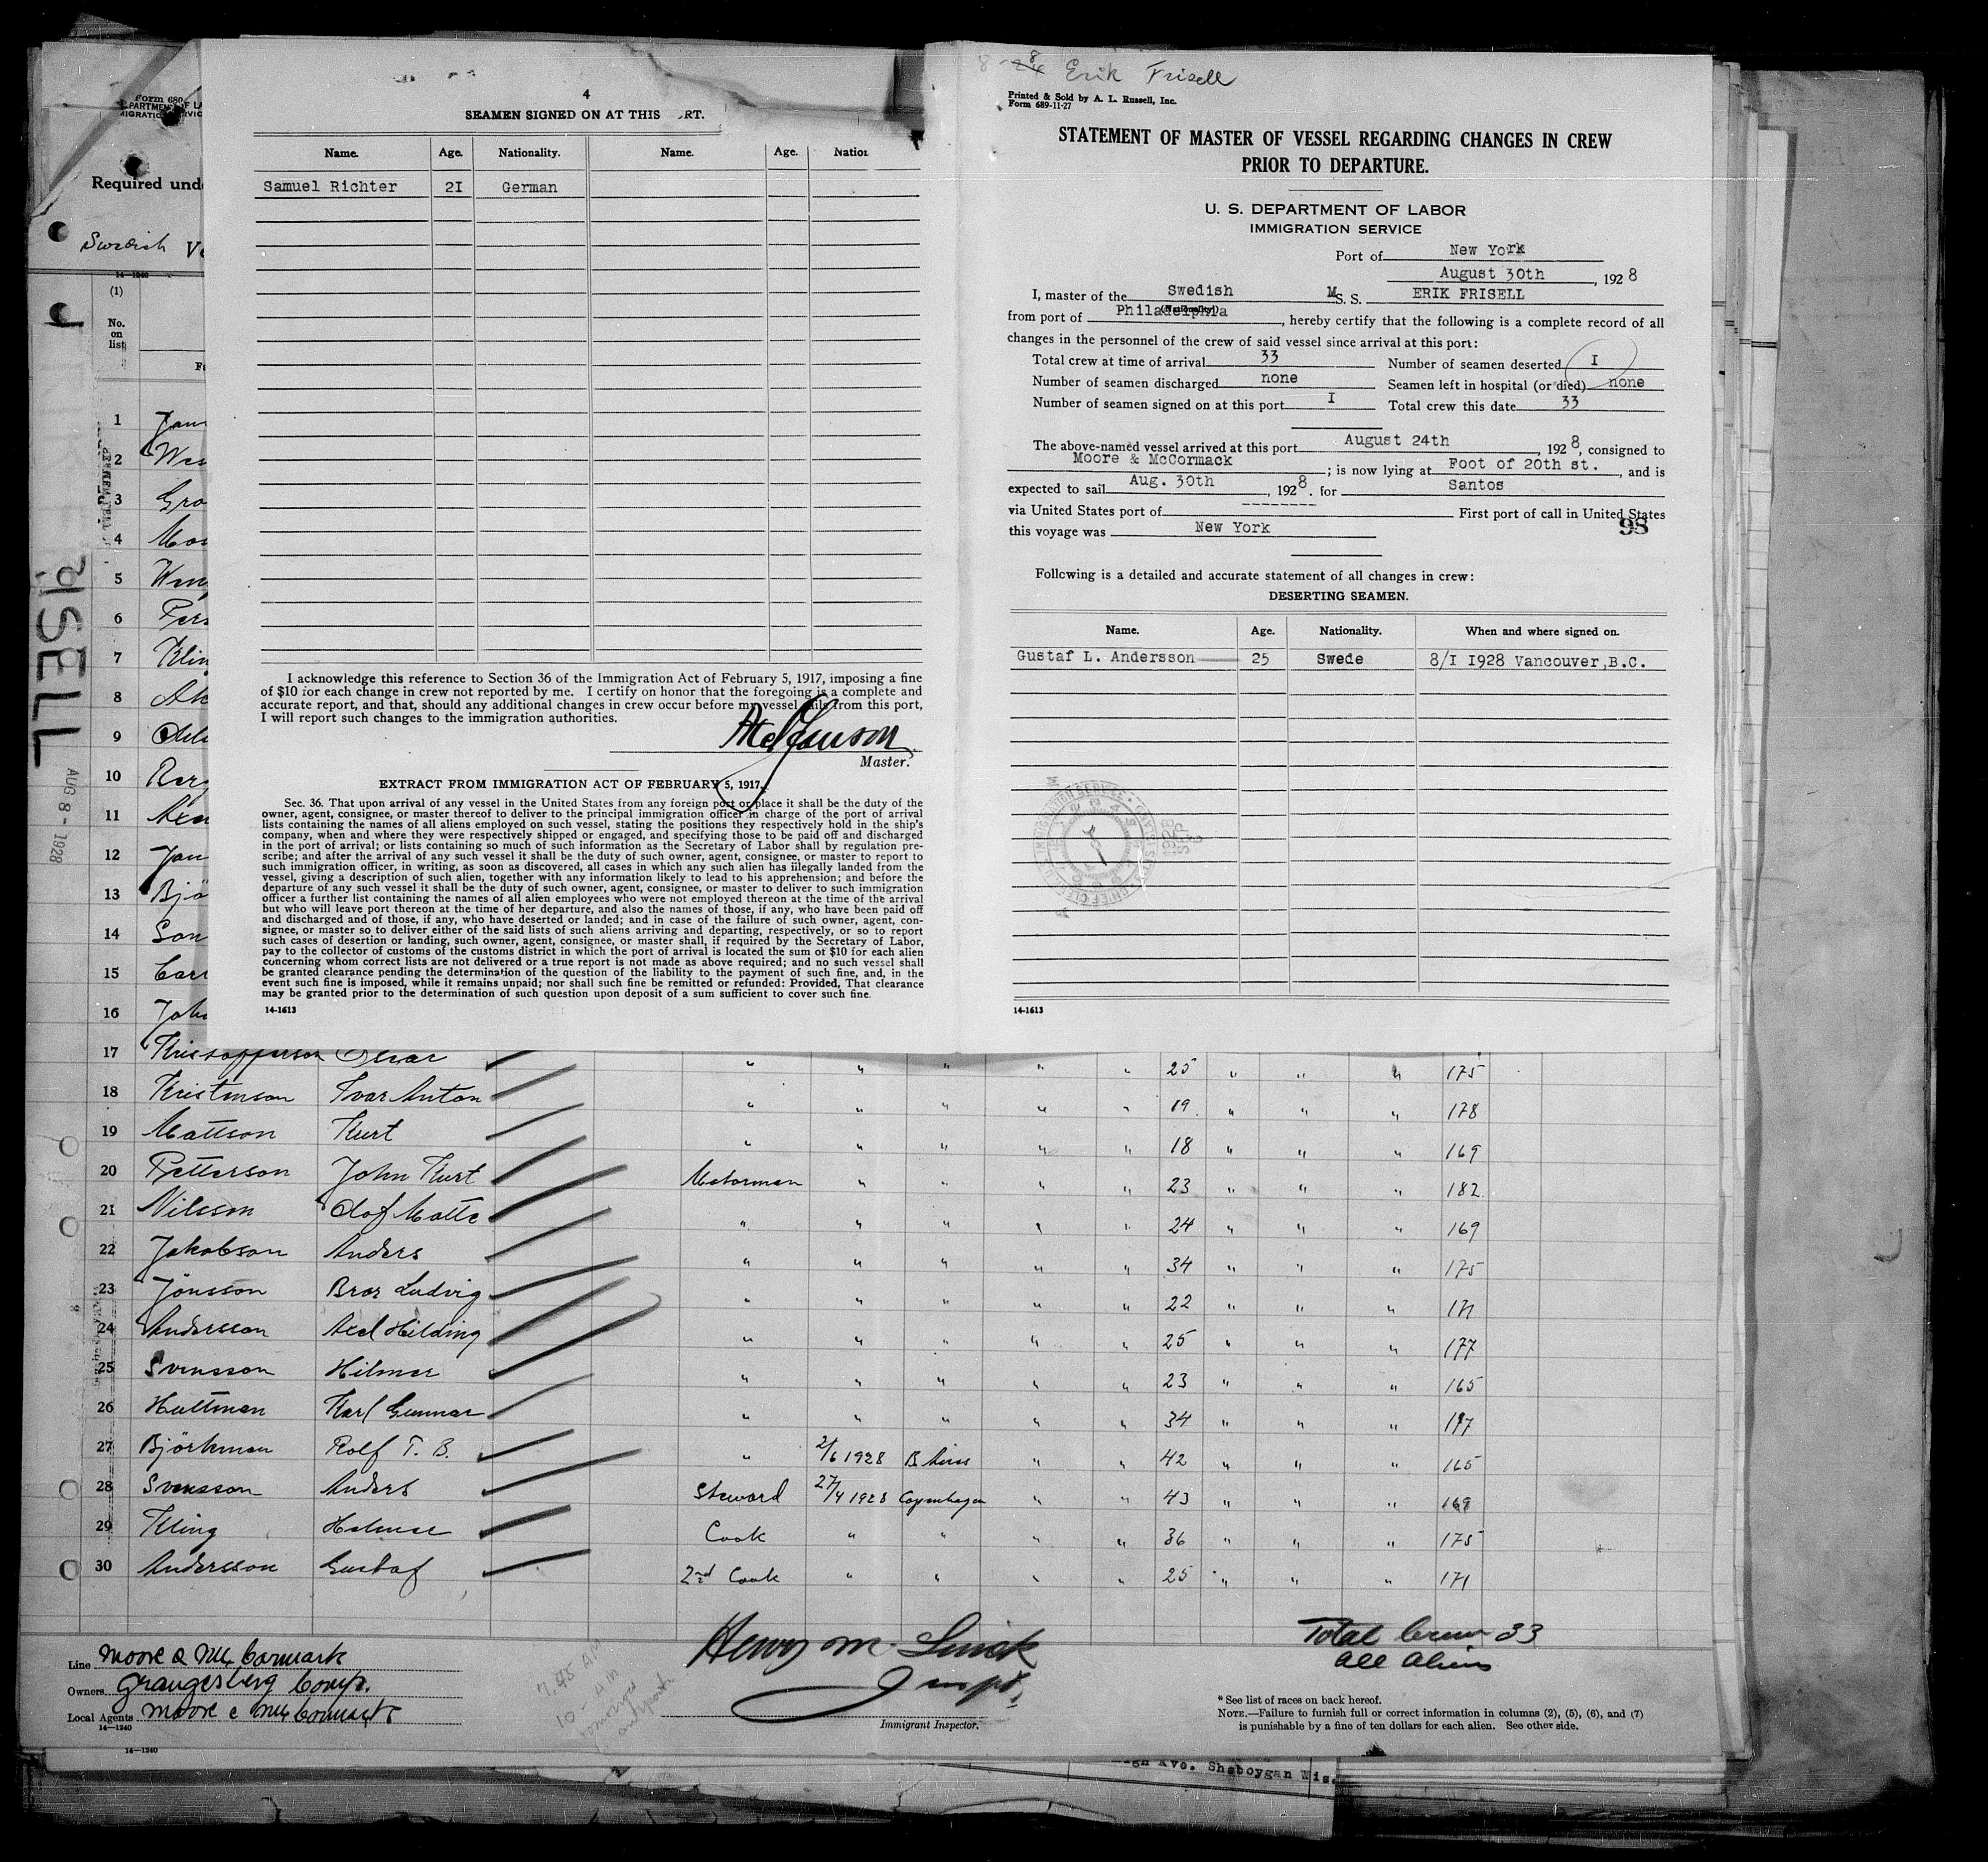 4
SEAMEN SIGNED ON AT THIS RT.
Name. Age. Nationality. Name. Age. Nation
Samuel Richter 2I German
I acknowledge this reference to Section 36 of the Immigration Act of February 5, 1917, imposing a fine
of $10 for each change in crew not reported by me. I certify on honor that the foregoing is a complete and
accurate report, and that, should any additional changes in crew occur before my vessel sails from this port,
I will report such changes to the immigration authorities.
Master.
EXTRACT FROM IMMIGRATION ACT OF FEBRUARY 5, 1917.
Sec. 36. That upon arrival of any vessel in the United States from any foreign port or place it shall be the duty of the
owner, agent, consignee, or master thereof to deliver to the principal immigration officer in charge of the port of arrival
lists containing the names of all aliens employed on such vessel, stating the positions they respectively hold in the ship's
company, when and where they were respectively shipped or engaged, and specifying those to be paid off and discharged
in the port of arrival; or lists containing so much of such information as the Secretary of Labor shall by regulation pre-
scribe; and after the arrival of any such vessel it shall be the duty of such owner, agent, consignee, or master to report to
such immigration officer, in writing, as soon as discovered, all cases in which any such alien has illegally landed from the
vessel, giving a description of such alien, together with any information likely to lead to his apprehension; and before the
departure of any such vessel it shall be the duty of such owner, agent, consignee, or master to deliver to such immigration
officer a further list containing the names of all alien employees who were not employed thereon at the time of the arrival
but who will leave port thereon at the time of her departure, and also the names of those, if any, who have been paid off
and discharged and of those, if any, who have deserted or landed; and in case of the failure of such owner, agent, con-
signee, or master so to deliver either of the said lists of such aliens arriving and departing, respectively, or so to report
such cases of desertion or landing, such owner, agent, consignee, or master shall, if required by the Secretary of Labor,
pay to the collector of customs of the customs district in which the port of arrival is located the sum of $10 for each alien
concerning whom correct lists are not delivered or a true report is not made as above required; and no such vessel shall
be granted clearance pending the determination of the question of the liability to the payment of such fine, and, in the
event such fine is imposed, while it remains unpaid; nor shall such fine be remitted or refunded: Provided, That clearance
may be granted prior to the determination of such question upon deposit of a sum sufficient to cover such fine.
14-1613
Erik Frisell
Printed & Sold by A. L. Russell, Inc.
Form 689-11-27
STATEMENT OF MASTER OF VESSEL REGARDING CHANGES IN CREW
PRIOR TO DEPARTURE.
U. S. DEPARTMENT OF LABOR
IMMIGRATION SERVICE
Port of New York
August 30th, 1928
I, master of the Swedish M S. S. ERIK FRISELL
(Nationality)
from port of Philadelphia, hereby certify that the following is a complete record of all
changes in the personnel of the crew of said vessel since arrival at this port:
Total crew at time of arrival 33 Number of seamen deserted I
Number of seamen discharged none Seamen left in hospital (or died) none
Number of seamen signed on at this port I Total crew this date 33
The above-named vessel arrived at this port August 24th, 1928, consigned to
Moore & McCormack; is now lying at Foot of 20th st., and is
expected to sail Aug. 30th, 1928. for Santos
via United States port of ------- First port of call in United States
this voyage was New York
98
Following is a detailed and accurate statement of all changes in crew:
DESERTING SEAMEN.
Name. Age. Nationality. When and where signed on.
Gustaf L. Andersson 25 Swede 8/I I928 Vancouver,B.C.
14-1613
Form 680
Required und
Swedish Ve
14-1240
(1)
No.
on
list
ISELL
AUG 8 - 1928
1 Jan
2 Wes
3 Gro
4 Mos
5 Wen
6 Pers
7 Klin
8 Ak
9
10 Berg
11 Axe
12 Jan
13 Bjö
14 Son
15 Carl
16 Joh
17 Kristofferson Oscar " " " " " 25 " " " 175
18 Kristenson Ivar Anton " " " " " 19 " " " 178
19 Mattson Kurt " " " " " 18 " " " 169
20 Petterson John Kurt Motorman " " " " 23 " " " 182
21 Nilsson Olof Matte " " " " " 24 " " " 169
22 Jakobson Anders " " " " " 34 " " " 175
23 Jönsson Bror Ludvig " " " " " 22 " " " 171
24 Andersson Axel Hilding " " " " " 25 " " " 177
25 Svensson Hilmer " " " " " 23 " " " 165
26 Hultman Karl Gunnar " " " " " 34 " " " 177
27 Björkman Rolf T. B. " 2/6 1928 B. Aires " " 42 " " " 165
28 Svensson Anders Steward 27/4 1928 Copenhagen " " 43 " " " 169
29 Kling Helmer Cook " " " " 36 " " " 175
30 Andersson Gustaf 2nd Cook " " " " 25 " " " 171
Line Moore & McCormack
Owners Grangesberg Comp.
Local Agents Moore & McCormack
14-1240
Immigrant Inspector.
Total Crew 33
All Aliens
* See list of races on back hereof.
NOTE.—Failure to furnish full or correct information in columns (2), (5), (6), and (7)
is punishable by a fine of ten dollars for each alien. See other side.
14-1240
Ave. Sheboygan Wis.